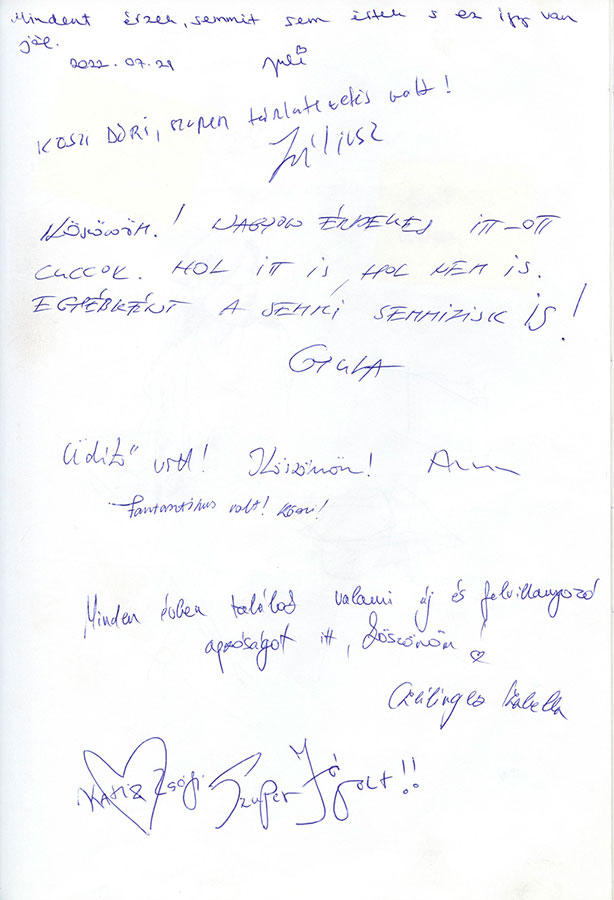 Mindent érzek, semmit sem értek s ez így van
jól.
2022.07.29 Juli
KÖSZI DÓRI, szuper tárlatvezetés volt!
Júliusz
Köszönöm! NAGYON ÉRDEKES ITT-OTT
CUCCOK. HOL ITT IS, HOL NEM IS.
EGYÉBKÉNT A SEMMI SEMMIZISK IS!
GYULA
Üdítő volt! Köszönöm! Anna
Fantasztikus volt! Köszi!
Minden évben találod valami új és felvillanyozó
apróságot itt, Köszönöm!
Izabella
KATI & Zsófi Szuper Jó volt!!